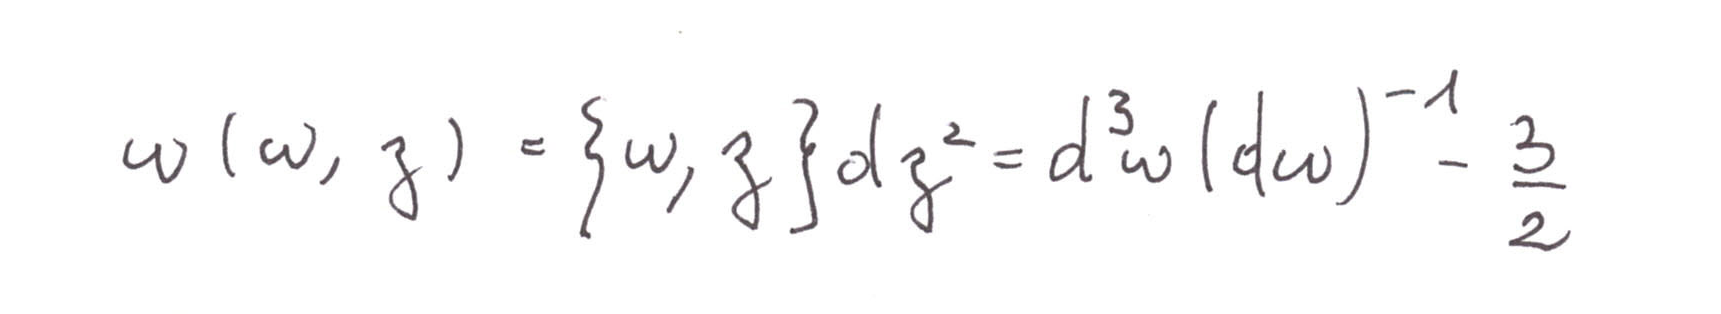 w(w, z) = {w, z}dz² = d³w(dw)⁻¹ - 3/2